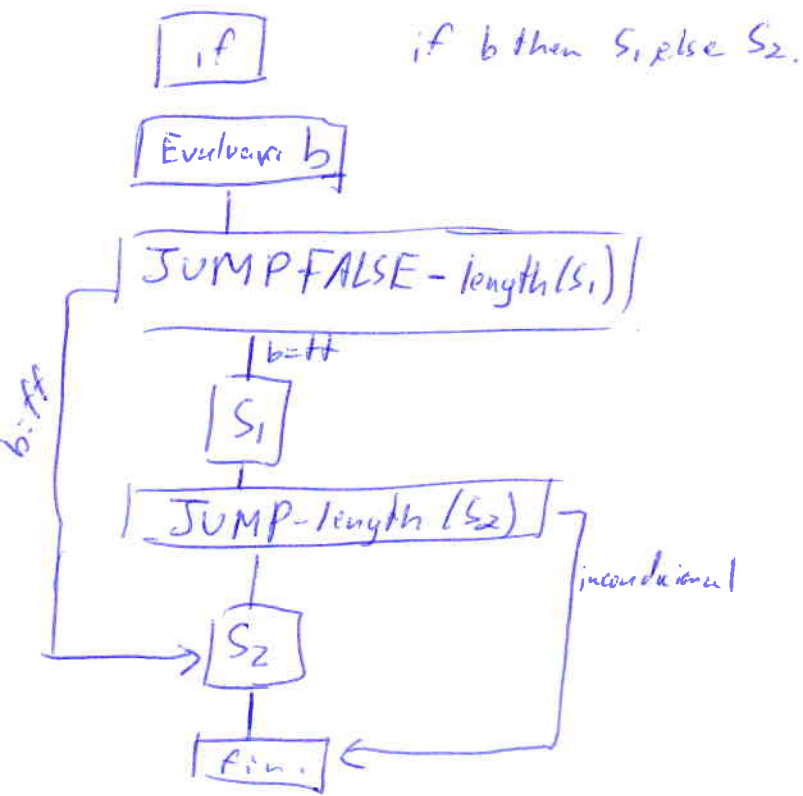 if
if b then S₁ else S₂.
Evaluar b
JUMPFALSE-length(S₁)
b=tt
b=ff
S₁
JUMP-length(S₂)
incondicional
S₂
fin.